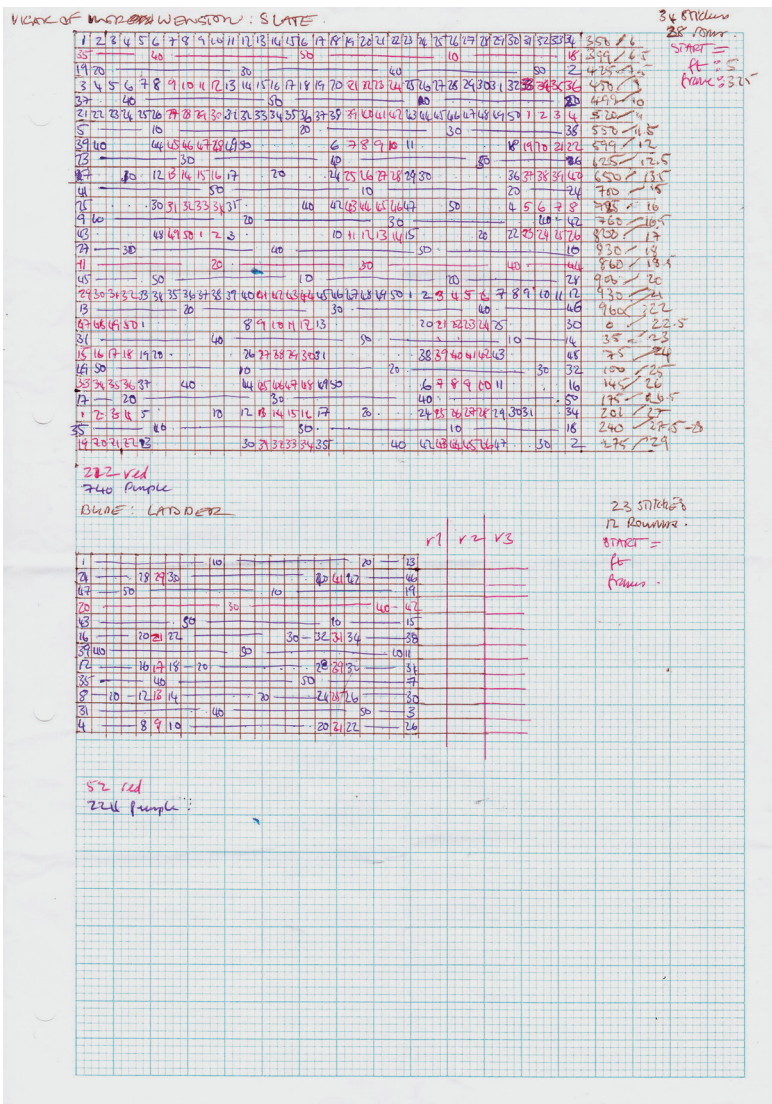 VICAR OF WENSTON: SLATE.
34 stitches
28 rows
1 2 3 4 5 6 7 8 9 10 11 12 13 14 15 16 17 18 19 20 21 22 23 24 25 26 27 28 29 30 31 32 33 34 350/6
START =
35 40 50 10 18 399/6.5
ft: 5
19 20 30 40 50 2
frame: 325
3 4 5 6 7 8 9 10 11 12 13 14 15 16 17 18 19 20 21 22 23 24 25 26 27 28 29 30 31 32 33 34 35 36
37 40 50 10 20 499/10
21 22 23 24 25 26 27 28 29 30 31 32 33 34 35 36 37 38 39 40 41 42 43 44 45 46 47 48 49 50 1 2 3 4
5 10 20 30 38 550
39 40 44 45 46 47 48 49 50 6 7 8 9 10 11 18 19 20 21 22 599/12
23 30 40 50 625/12.5
12 13 14 15 16 17 20 24 25 26 27 28 29 30 36 37 38 39 40 650/13.5
41 50 10 20 24 700/15
25 30 31 32 33 34 35 40 42 43 44 45 46 47 50 4 5 6 7 8 16
9 10 20 30 40 42 760/16.5
43 48 49 50 1 2 3 10 11 12 13 14 15 20 22 23 24 25 26 800/17
27 30 40 50 10 830/18
11 20 30 40 44 860
45 50 10 20 28 900/20
29 30 31 32 33 34 35 36 37 38 39 40 41 42 43 44 45 46 47 48 49 50 1 2 3 4 5 6 7 8 9 10 11 12 930/21
13 20 30 40 46 960/22
47 48 49 50 1 8 9 10 11 12 13 20 21 22 23 24 25 30 0/22.5
31 40 50 10 14 35/23
15 16 17 18 19 20 26 27 28 29 30 31 38 39 40 41 42 43 48 75/24
49 50 10 20 30 32 100/25
33 34 35 36 37 40 44 45 46 47 48 49 50 6 7 8 9 10 11 16 145/26
17 20 30 40 50 175/26.5
1 2 3 4 5 10 12 13 14 15 16 17 20 24 25 26 27 28 29 30 31 34 202/27
35 40 50 10 18 240/27.5-28
19 20 21 22 23 30 31 32 33 34 35 40 42 43 44 45 46 47 50 2 275/29
212 red
740 Purple
BUDE: LADDER
23 STITCHES
12 Rounds.
START =
ft
frames.
r1 r2 r3
1 10 20 23
24 28 29 30 40 41 42 46
47 50 10 19
20 30 40 42
43 50 10 15
16 20 21 22 30 32 33 34 38
39 40 50 10 11
12 16 17 18 20 28 29 30 34
35 40 50 7
8 10 12 13 14 20 24 25 26 30
31 40 50 3
4 8 9 10 20 21 22 26
52 red
224 Purple